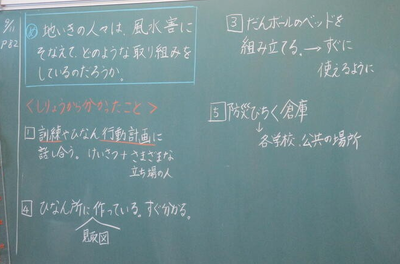 9/11
P82
め 地いきの人々は、風水害に
そなえて、どのような取り組みを
しているのだろうか。
<しりょうから分かったこと>
1 訓練やひなん行動計画に
話し合う。けいさつ+さまざまな
立ち場の人
4 ひなん所に作っている。すぐ分かる。
見取図
3 だんボールのベッドを
組み立てる。→すぐに
使えるように
5 防災びちく倉庫
↓
各学校、公共の場所